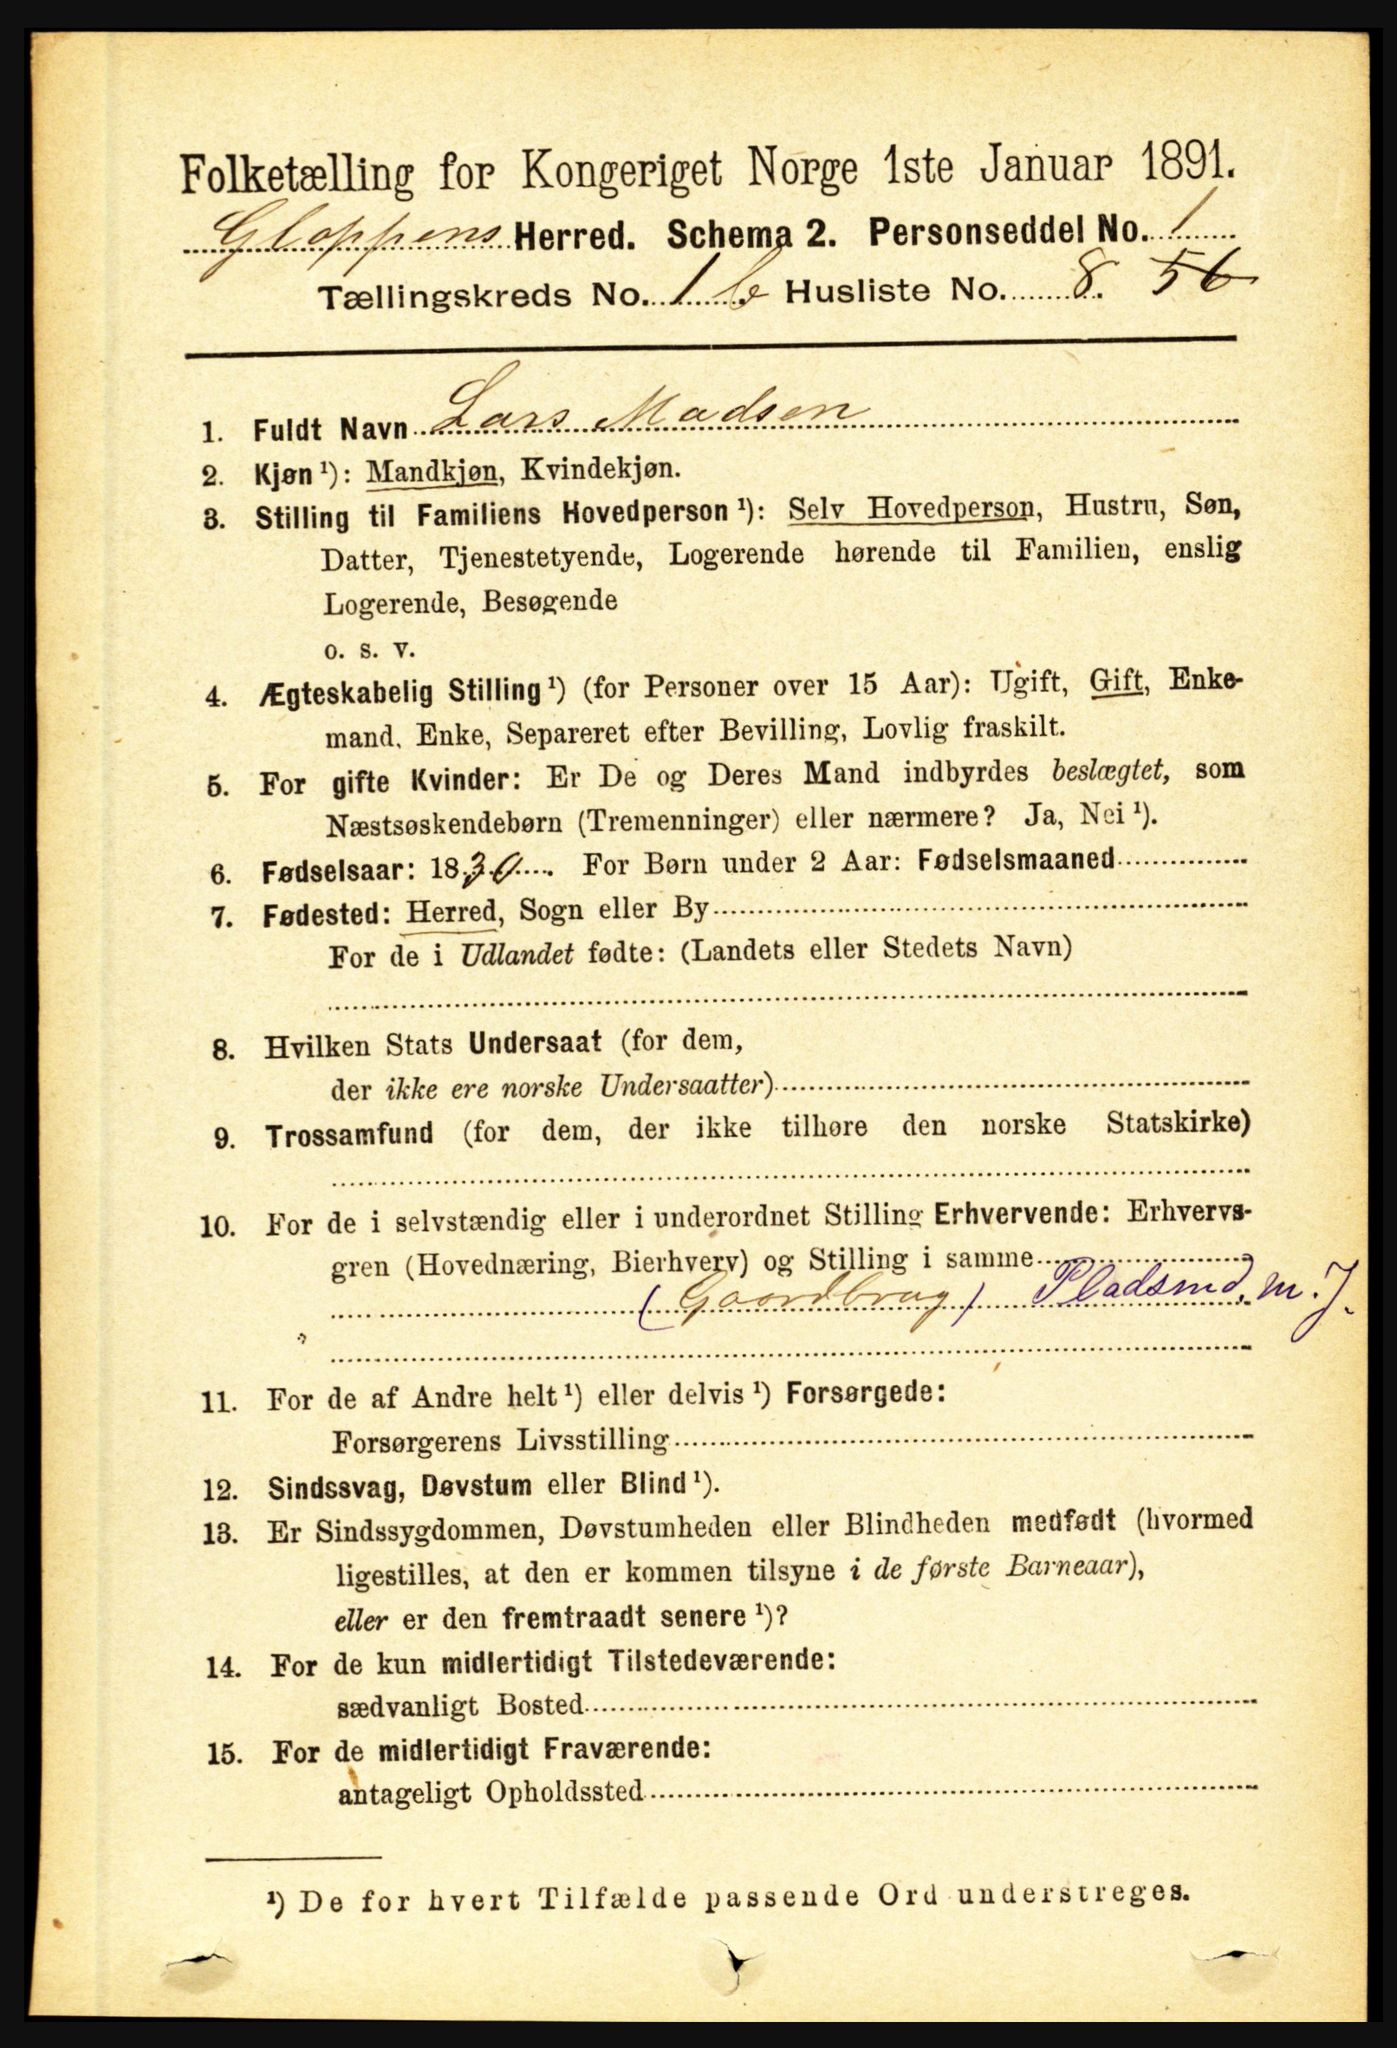 Folketælling for Kongeriget Norge 1ste Januar 1891.
Gloppens Herred. Schema 2. Personseddel No. 1
Tællingskreds No. 1 b Husliste No. 8. 56
1. Fuldt Navn Lars Madsen
2. Kjøn ¹): Mandkjøn, Kvindekjøn.
3. Stilling til Familiens Hovedperson ¹): Selv Hovedperson, Hustru, Søn,
Datter, Tjenestetyende, Logerende hørende til Familien, enslig
Logerende, Besøgende
o. s. v.
4. Ægteskabelig Stilling ¹) (for Personer over 15 Aar): Ugift, Gift, Enke-
mand, Enke, Separeret efter Bevilling, Lovlig fraskilt.
5. For gifte Kvinder: Er De og Deres Mand indbyrdes beslægtet, som
Næstsøskendebørn (Tremenninger) eller nærmere? Ja, Nei ¹).
6. Fødselsaar: 1830. For Børn under 2 Aar: Fødselsmaaned
7. Fødested: Herred, Sogn eller By
For de i Udlandet fødte: (Landets eller Stedets Navn)
8. Hvilken Stats Undersaat (for dem,
der ikke ere norske Undersaatter)
9. Trossamfund (for dem, der ikke tilhøre den norske Statskirke)
10. For de i selvstændig eller i underordnet Stilling Erhvervende: Erhvervs-
gren (Hovednæring, Bierhverv) og Stilling i samme
(Gaardbrug) Pladsmd. m. J.
11. For de af Andre helt ¹) eller delvis ¹) Forsørgede:
Forsørgerens Livsstilling
12. Sindssvag, Døvstum eller Blind ¹).
13. Er Sindssygdommen, Døvstumheden eller Blindheden medfødt (hvormed
ligestilles, at den er kommen tilsyne i de første Barneaar),
eller er den fremtraadt senere ¹)?
14. For de kun midlertidigt Tilstedeværende:
sædvanligt Bosted
15. For de midlertidigt Fraværende:
antageligt Opholdssted
¹) De for hvert Tilfælde passende Ord understreges.